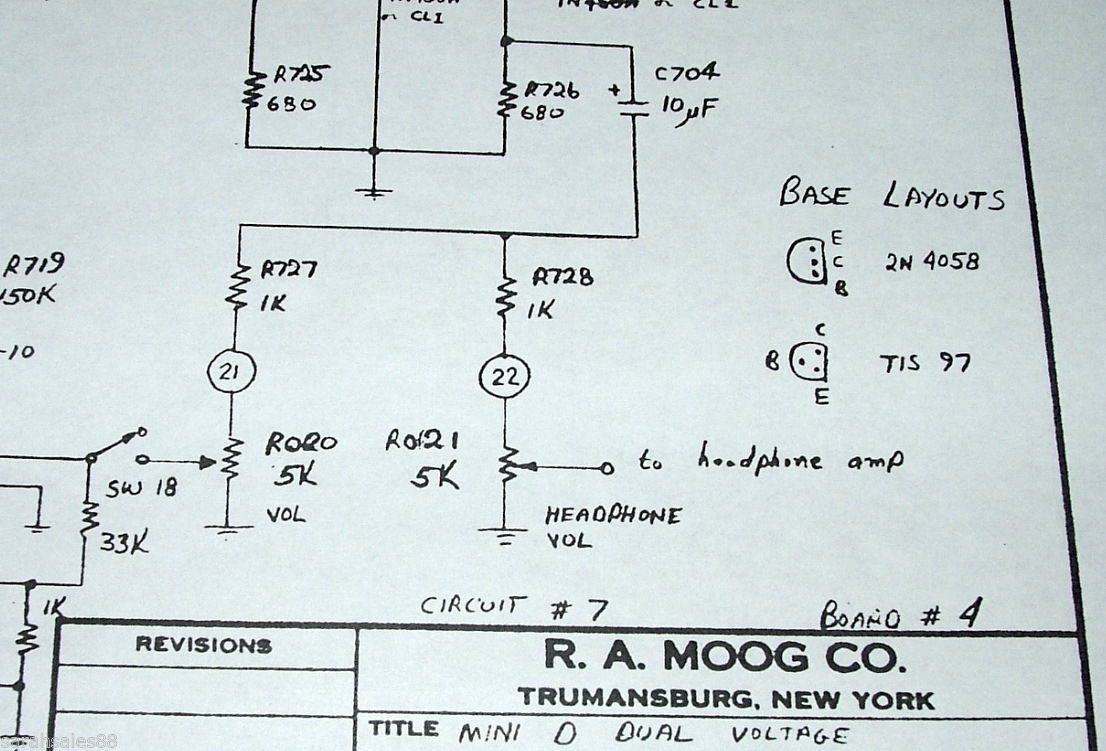 or CL1
or CL1
R725
680
R726
680
+
C704
10µF
BASE LAYOUTS
E
C
B
2N 4058
C
B
E
TIS 97
R719
150K
-10
R727
1K
R728
1K
21
22
R020
5K
VOL
R0121
5K
to headphone amp
HEADPHONE
VOL
SW 18
33K
1K
CIRCUIT # 7
BOARD # 4
REVISIONS
R. A. MOOG CO.
TRUMANSBURG, NEW YORK
TITLE MINI D DUAL VOLTAGE
sarahsales88